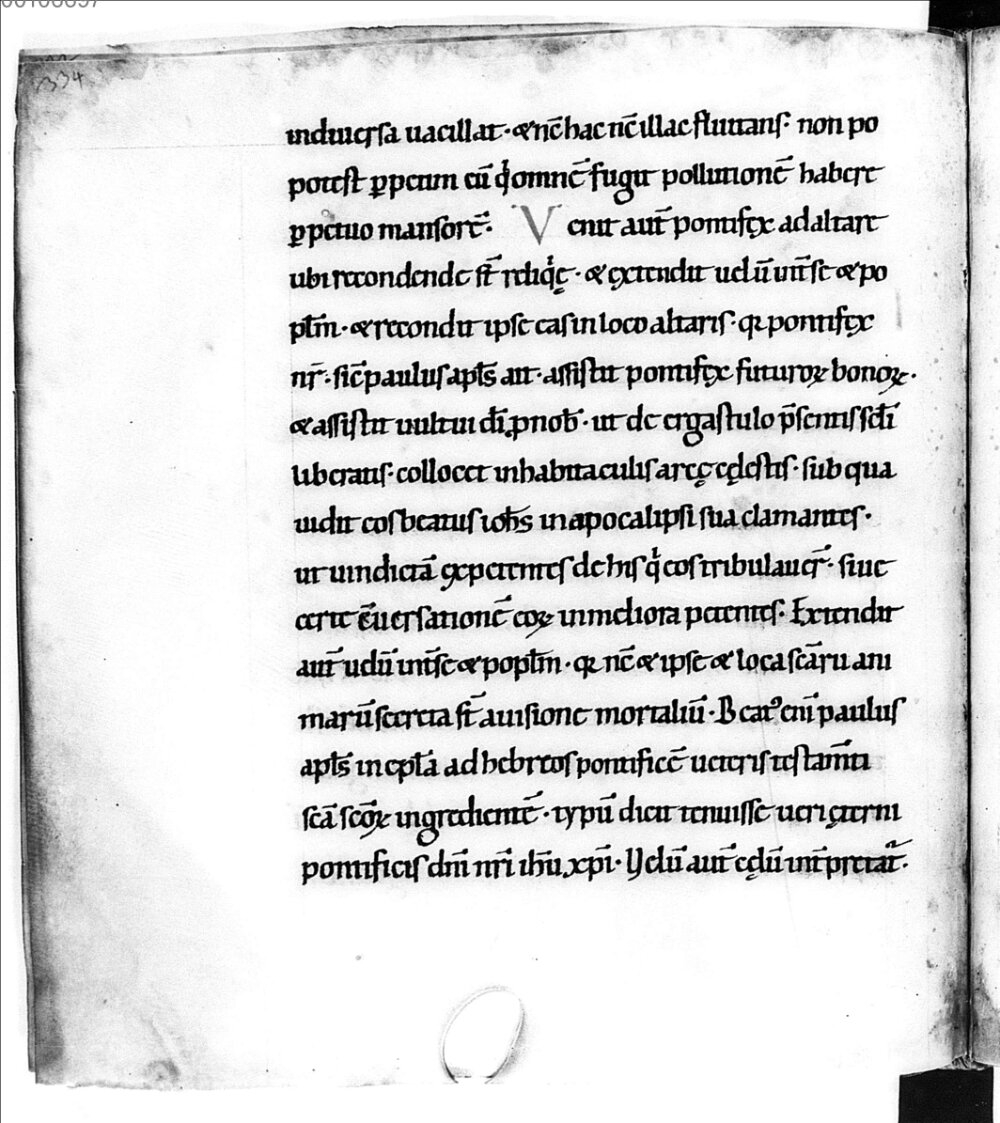 334
indiuersa uacillat· & nc̄ hac nc̄ illac fluitans· non po
potest ꝑpetim cū qͥ omnē fugit pollutionē habere
ꝑpetuo mansorē· Venit aut̄ pontifex ad altare
ubi recondende st̄ reliqͥę· & extendit uelū int̄ se & po
pl̄m· & recondit ipse eas in loco altaris· qꝛ pontifex
nr̄· sic̄ paulus apl̄s ait· assistit pontifex futuroꝝ bonoꝝ·
& assistit uultui dī ꝓ nob̄· ut de ergastulo p̄sentis sc̄li
liberans· collocet in habitaculis arcę cęlestis· sub qua
uidit eos beatus ioh̄s in apocalipsi sua clamantes·
ut uindictā expetentes de his qͥ eos tribulauer̄· siue
certe c̄uersationē eoꝝ in meliora petentes· Extendit
aut̄ uelū int̄ se & popl̄m· qꝛ nc̄ & ipse & loca sc̄aꝝ ani
marū secreta st̄ a uisione mortaliū· Beatꝰ eni̅ paulus
apl̄s in epl̄a ad hebreos pontificē ueteris testam̄ti
sc̄a sc̄oꝝ ingredientē· typū dicit tenuisse ueri ęterni
pontificis dn̄i nr̄i ih̄u xp̄i· Velū aut̄ cęlū int̄pretat᷑·